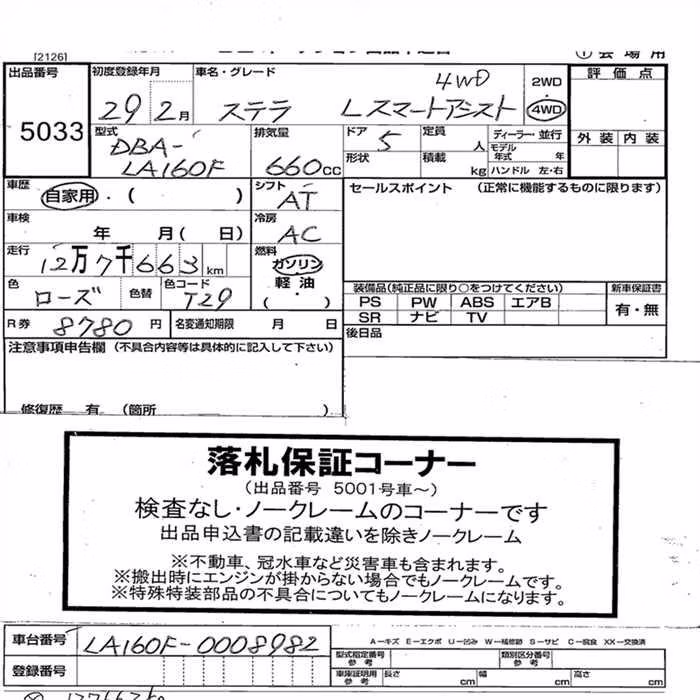 [2126]
① 会場用
出品番号 5033
初度登録年月 29 2月
車名・グレード ステラ Lスマートアシスト 4WD
2WD 4WD
評価点
外装 内装
型式 DBA-LA160F
排気量 660cc
ドア 5
形状
定員 人
積載 kg
ディーラー・並行
モデル年式 年
ハンドル 左・右
車歴 自家用・( )
シフト AT
車検 年 月( 日)
冷房 AC
走行 12万7千663km
燃料 ガソリン 軽油 ( ・ )
色 ローズ 色替 色コード T29
R券 8780円 名変通知期限 月 日
セールスポイント (正常に機能するものに限ります)
装備品(純正品に限り○をつけてください)
PS PW ABS エアB
SR ナビ TV
新車保証書
有・無
後日品
注意事項申告欄 (不具合内容等は具体的に記入して下さい)
修復歴 有 (箇所 )
落札保証コーナー
(出品番号 5001号車~)
検査なし・ノークレームのコーナーです
出品申込書の記載違いを除きノークレーム
※不動車、冠水車など災害車も含まれます。
※搬出時にエンジンが掛からない場合でもノークレームです。
※特殊特装部品の不具合についてもノークレームになります。
車台番号 LA160F-0008982
A-キズ E-エクボ U-凹み W-補修跡 S-サビ C-腐食 XX-交換済
登録番号
型式指定番号 参考
類別区分番号 参考
車庫証明用 参考 長さ cm 幅 cm 高さ cm